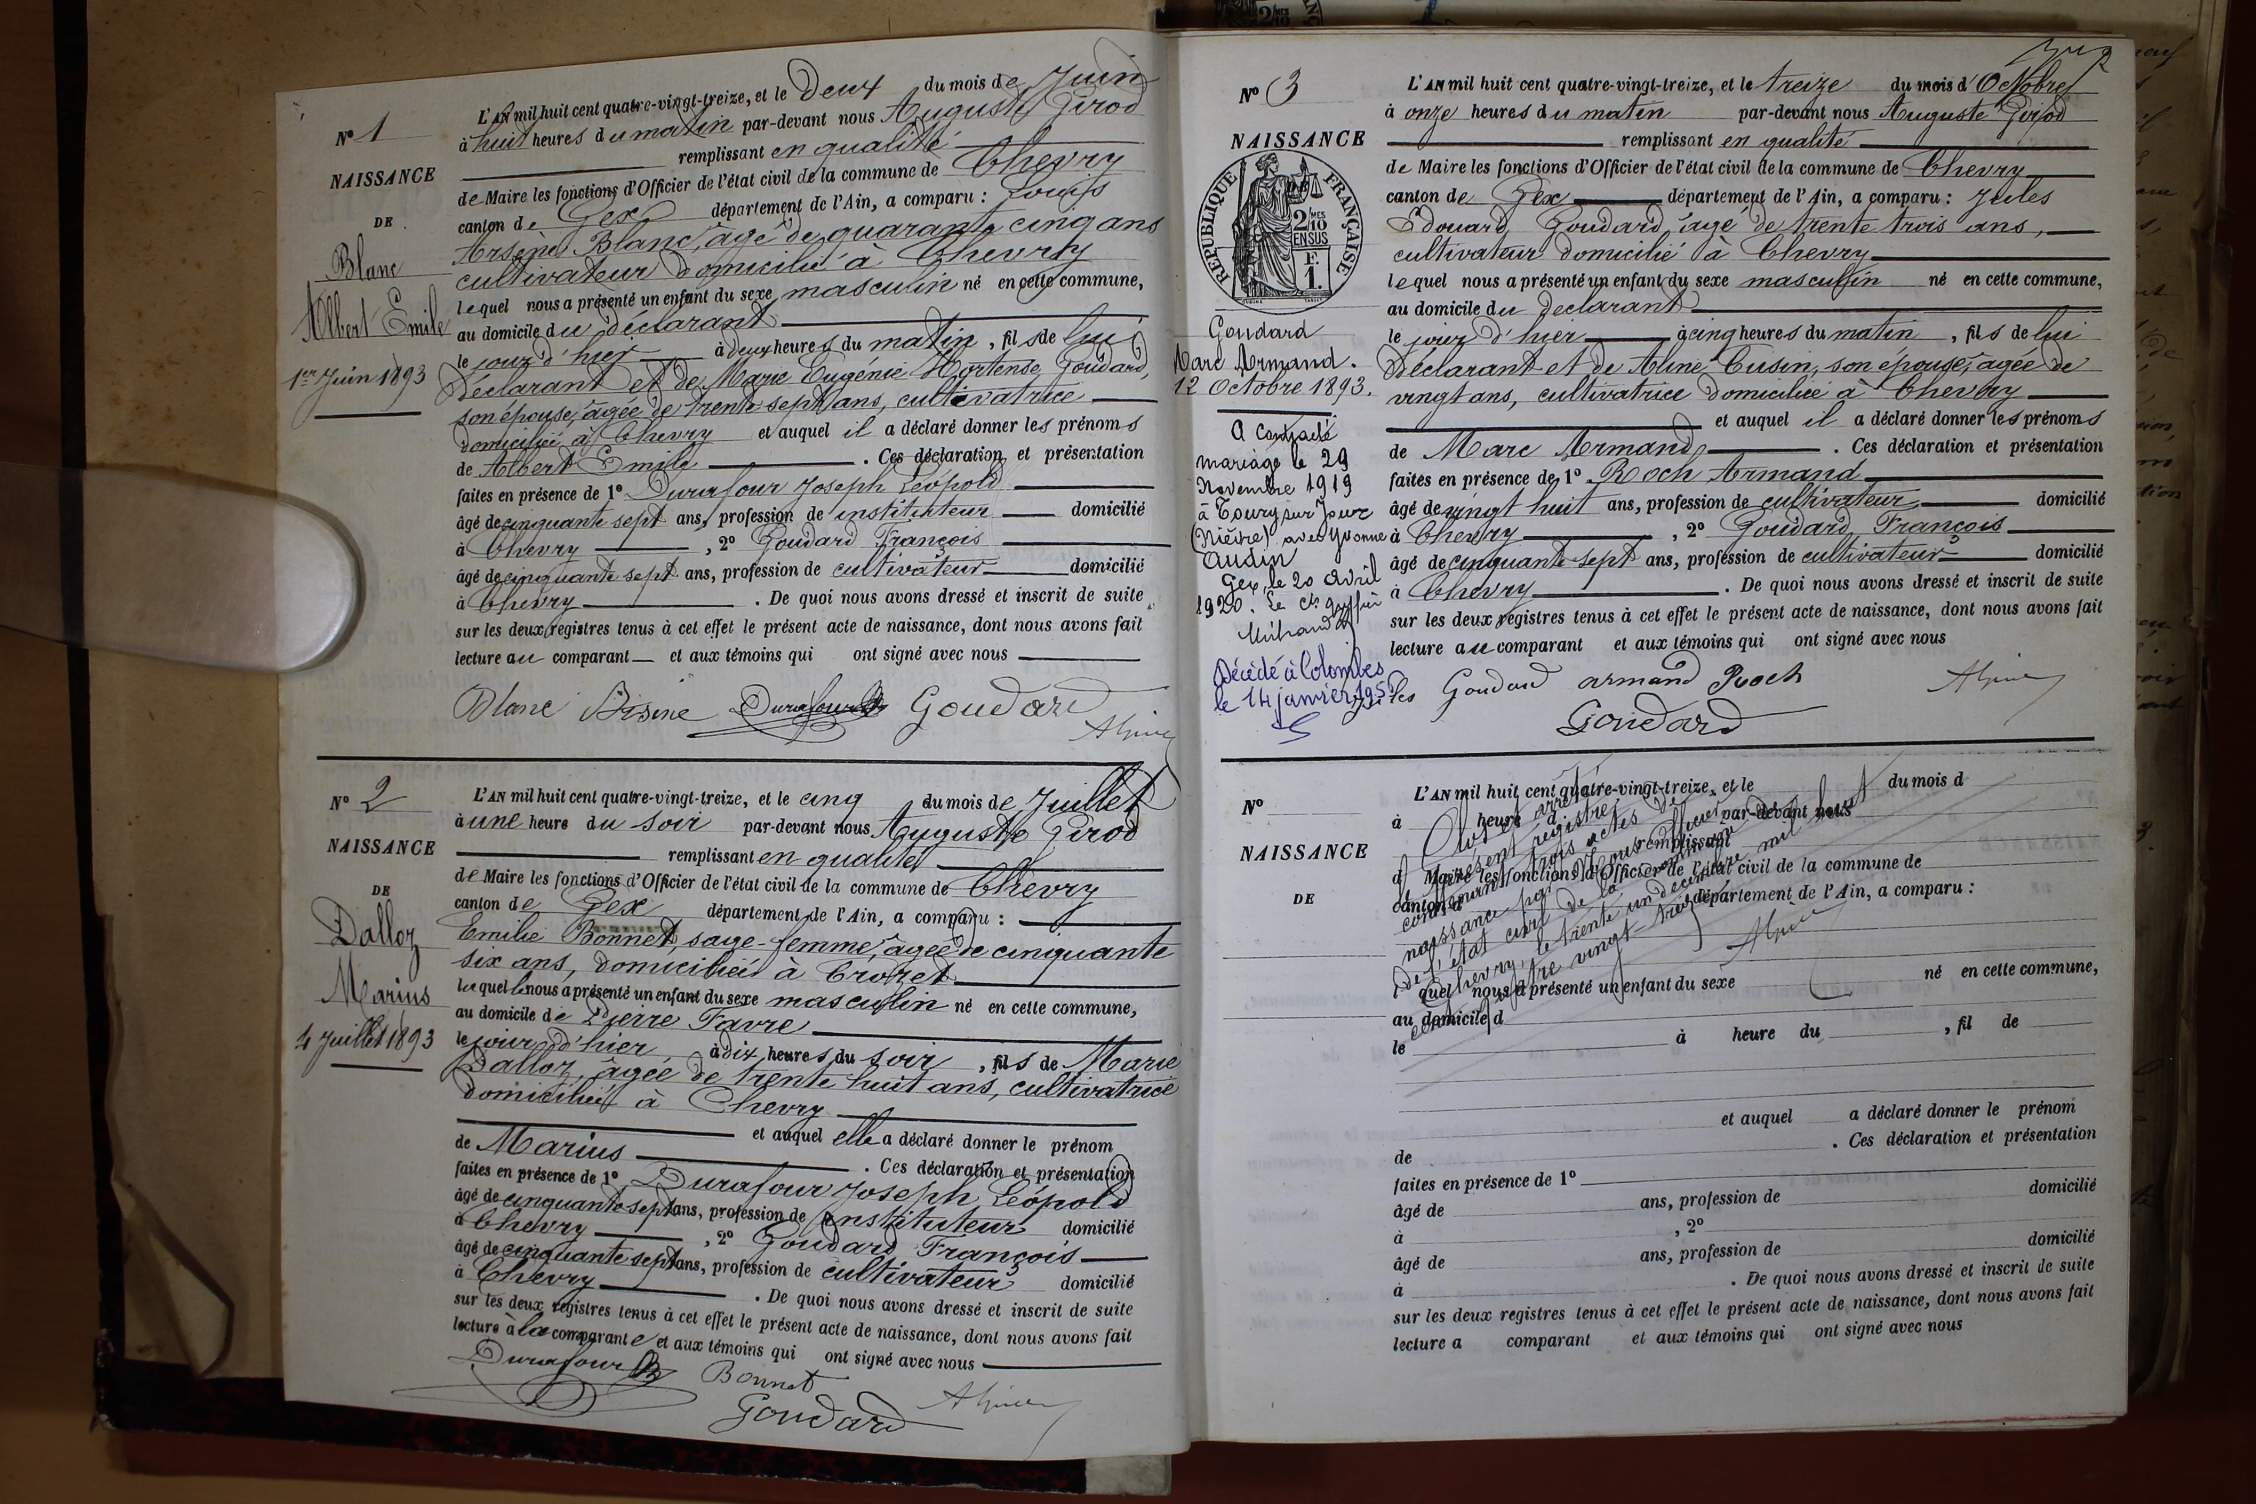 N° 1
NAISSANCE
DE
Blanc
Albert Emile
1er Juin 1893
L'AN mil huit cent quatre-vingt-treize, et le Deux du mois de Juin
à huit heures du matin par-devant nous Auguste Girod
remplissant en qualité
de Maire les fonctions d'Officier de l'état civil de la commune de Chevry
canton de Gex département de l'Ain, a comparu : Louis
Arsène Blanc, âgé de quarante cinq ans
cultivateur domicilié à Chevry
lequel nous a présenté un enfant du sexe masculin né en cette commune,
au domicile du déclarant
le jour d'hier à deux heures du matin, fils de lui
Déclarant et de Marie Eugénie Hortense Goudard,
son épouse, âgée de trente sept ans, cultivatrice
domiciliée à Chevry et auquel il a déclaré donner les prénoms
de Albert Emile . Ces déclaration et présentation
faites en présence de 1° Durafour Joseph Léopold
âgé de cinquante sept ans, profession de instituteur domicilié
à Chevry , 2° Goudard François
âgé de cinquante sept ans, profession de cultivateur domicilié
à Chevry . De quoi nous avons dressé et inscrit de suite
sur les deux registres tenus à cet effet le présent acte de naissance, dont nous avons fait
lecture au comparant et aux témoins qui ont signé avec nous
Blanc Durafour Goudard
N° 2
NAISSANCE
DE
Dalloz
Marius
4 Juillet 1893
L'AN mil huit cent quatre-vingt-treize, et le cinq du mois de Juillet
à une heure du soir par-devant nous Auguste Girod
remplissant en qualité
de Maire les fonctions d'Officier de l'état civil de la commune de Chevry
canton de Gex département de l'Ain, a comparu :
Emilie Bonnet, sage-femme, âgée de cinquante
six ans, domiciliée à Crozet
laquelle nous a présenté un enfant du sexe masculin né en cette commune,
au domicile de Pierre Favre
le jour d'hier à dix heures du soir, fils de Marie
Dalloz, âgée de trente huit ans, cultivatrice
domiciliée à Chevry
et auquel elle a déclaré donner le prénom
de Marius . Ces déclaration et présentation
faites en présence de 1° Durafour Joseph Léopold
âgé de cinquante sept ans, profession de instituteur domicilié
à Chevry , 2° Goudard François
âgé de cinquante sept ans, profession de cultivateur domicilié
à Chevry . De quoi nous avons dressé et inscrit de suite
sur les deux registres tenus à cet effet le présent acte de naissance, dont nous avons fait
lecture à la comparante et aux témoins qui ont signé avec nous
Durafour Bonnet
Goudard
N° 3
NAISSANCE
DE
RÉPUBLIQUE FRANÇAISE
2 MES
10
EN SUS
F.
1.
Goudard
Marc Armand.
12 Octobre 1893.
A contracté
mariage le 29
Novembre 1919
à Toury sur Jour
(Nièvre) avec Yvonne
Audin
Gex, le 20 Avril
1920. Le
Décédé à Colombes
le 14 janvier
L'AN mil huit cent quatre-vingt-treize, et le treize du mois d'Octobre
à onze heures du matin par-devant nous Auguste Girod
remplissant en qualité
de Maire les fonctions d'Officier de l'état civil de la commune de Chevry
canton de Gex département de l'Ain, a comparu : Jules
Edouard Goudard âgé de trente trois ans,
cultivateur domicilié à Chevry
lequel nous a présenté un enfant du sexe masculin né en cette commune,
au domicile du déclarant
le jour d'hier à cinq heures du matin, fils de lui
Déclarant et de Aline Cusin, son épouse, agée de
vingt ans, cultivatrice domiciliée à Chevry
et auquel il a déclaré donner les prénoms
de Marc Armand . Ces déclaration et présentation
faites en présence de 1° Roch Armand
âgé de vingt huit ans, profession de cultivateur domicilié
à Chevry , 2° Goudard François
âgé de cinquante sept ans, profession de cultivateur domicilié
à Chevry . De quoi nous avons dressé et inscrit de suite
sur les deux registres tenus à cet effet le présent acte de naissance, dont nous avons fait
lecture au comparant et aux témoins qui ont signé avec nous
Jules Goudard Armand Roch
Goudard
N°
NAISSANCE
DE
L'AN mil huit cent quatre-vingt-treize, et le du mois d
à heure d par-devant nous
remplissant
d Maire les fonctions d'Officier de l'état civil de la commune de
canton d département de l'Ain, a comparu :
l quel nous a présenté un enfant du sexe né en cette commune,
au domicile d
le à heure du , fil de
et auquel a déclaré donner le prénom
de . Ces déclaration et présentation
faites en présence de 1°
âgé de ans, profession de domicilié
à , 2°
âgé de ans, profession de domicilié
à . De quoi nous avons dressé et inscrit de suite
sur les deux registres tenus à cet effet le présent acte de naissance, dont nous avons fait
lecture a comparant et aux témoins qui ont signé avec nous
Clos et arrêté
le présent registre
contenant trois actes de
naissance par Nous officier
de l'état civil de la commune de
Chevry, le trente un décembre mil huit
cent quatre vingt-treize